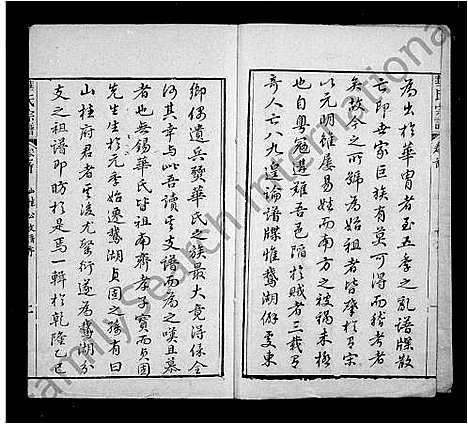 為出於華胄者至五季之亂譜牒散
亡即世家巨族有莫可得而稽考者
矣故今之所號為始祖者皆肇於有宋
以元明雖屢易姓而南方之被禍未極
也昔粵冦遍擾吾邑陷於賊者三載有
奇人亡八九遑論譜牒惟鵝湖僻處東
鄉偶遺兵頭華氏之族最大竟得保全
何其幸與此吾讀其支譜而為之嘆且慕
者也無錫華氏皆祖南齊孝子寶而貞固
先生生於元季始遷鵝湖貞固之孫有曰
山桂府君者其後尤繁衍遂為鵝湖分
支之祖譜即昉於是焉一輯於乾隆乙巳
華氏宗譜
卷首
FamilySearch International